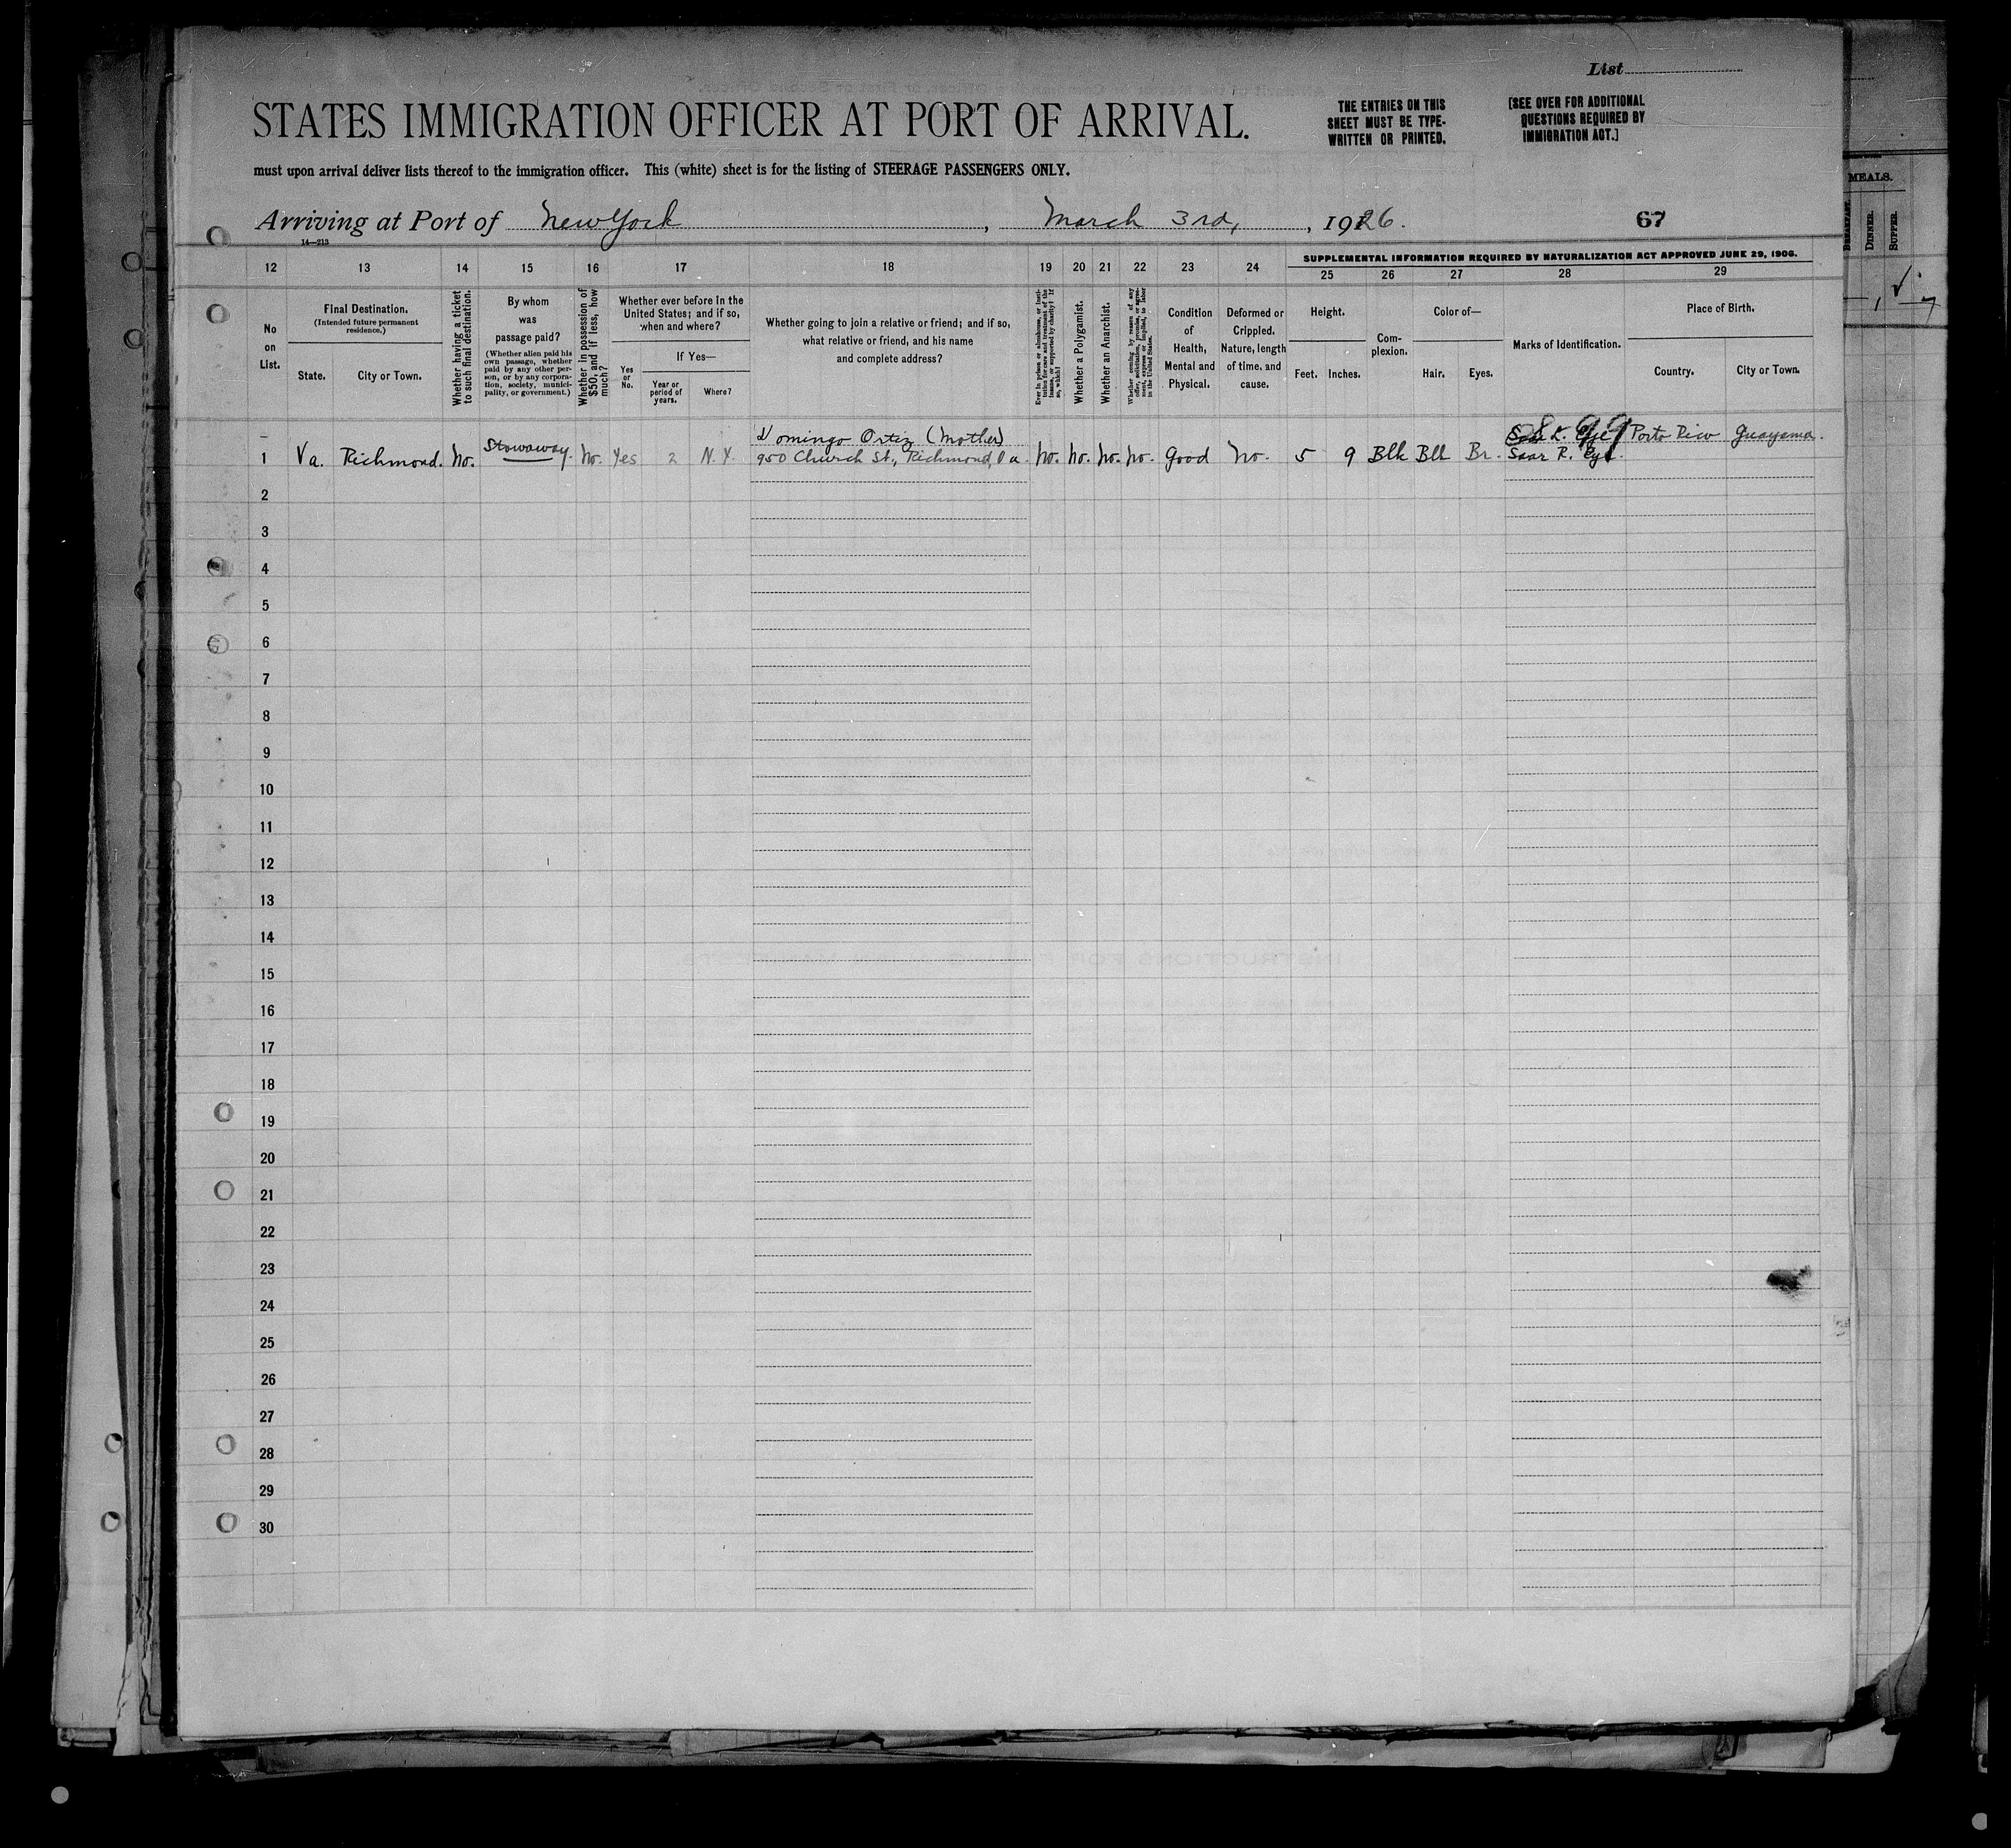 List
STATES IMMIGRATION OFFICER AT PORT OF ARRIVAL.
THE ENTRIES ON THIS
SHEET MUST BE TYPE-
WRITTEN OR PRINTED.
[SEE OVER FOR ADDITIONAL
QUESTIONS REQUIRED BY
IMMIGRATION ACT.]
must upon arrival deliver lists thereof to the immigration officer. This (white) sheet is for the listing of STEERAGE PASSENGERS ONLY.
Arriving at Port of New York, March 3rd, 1926.
67
14—213
12 13 14 15 16 17 18 19 20 21 22 23 24
SUPPLEMENTAL INFORMATION REQUIRED BY NATURALIZATION ACT APPROVED JUNE 29, 1906.
25 26 27 28 29
No
on
List.
Final Destination.
(Intended future permanent
residence.)
State.
City or Town.
Whether having a ticket
to such final destination.
By whom
was
passage paid?
(Whether alien paid his
own passage, whether
paid by any other per-
son, or by any corpora-
tion, society, munici-
pality, or government.)
Whether in possession of
$50, and if less, how
much?
Whether ever before in the
United States; and if so,
when and where?
Yes
or
No.
If Yes—
Year or
period of
years.
Where?
Whether going to join a relative or friend; and if so,
what relative or friend, and his name
and complete address?
Ever in prison or almshouse, or insti-
tution for care and treatment of the
insane, or supported by charity? If
so, which?
Whether a Polygamist.
Whether an Anarchist.
Whether coming by reason of any
offer, solicitation, promise, or agree-
ment, express or implied, to labor
in the United States.
Condition
of
Health,
Mental and
Physical.
Deformed or
Crippled.
Nature, length
of time, and
cause.
Height.
Feet.
Inches.
Com-
plexion.
Color of—
Hair.
Eyes.
Marks of Identification.
Place of Birth.
Country.
City or Town.
Domingo Ortiz (Mother)
1 Va. Richmond. No. Stowaway. No. Yes 2 N.Y. 950 Church St., Richmond, Va. No. No. No. No. Good No. 5 9 Blk Blk Br. R. Porto Rico Guayama.
2
3
4
5
6
7
8
9
10
11
12
13
14
15
16
17
18
19
20
21
22
23
24
25
26
27
28
29
30
MEALS.
BREAKFAST.
DINNER.
SUPPER.